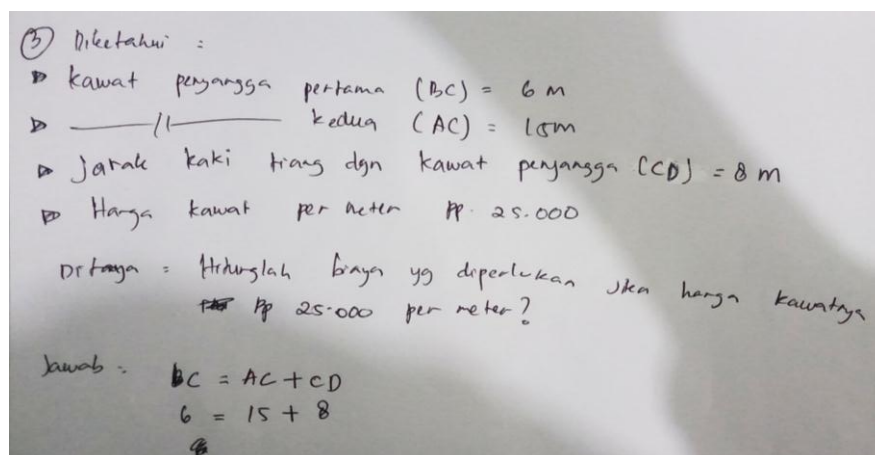 ③ Diketahui :
▷ kawat penyangga pertama (BC) = 6 m
▷ ———//——— kedua (AC) = 15m
▷ Jarak kaki tiang dgn kawat penyangga (CD) = 8 m
▷ Harga kawat per meter Rp. 25.000
Ditanya = Hitunglah biaya yg diperlukan jika harga kawatnya
Rp 25.000 per meter?
Jawab : BC = AC + CD
6 = 15 + 8